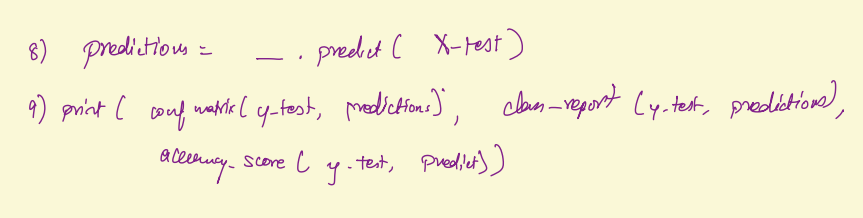 8) predictions = __ . predict ( X-test )
9) print ( conf matrix ( y-test, predictions ), class-report ( y-test, predictions ),
accuracy_score ( y-test, predict ) )